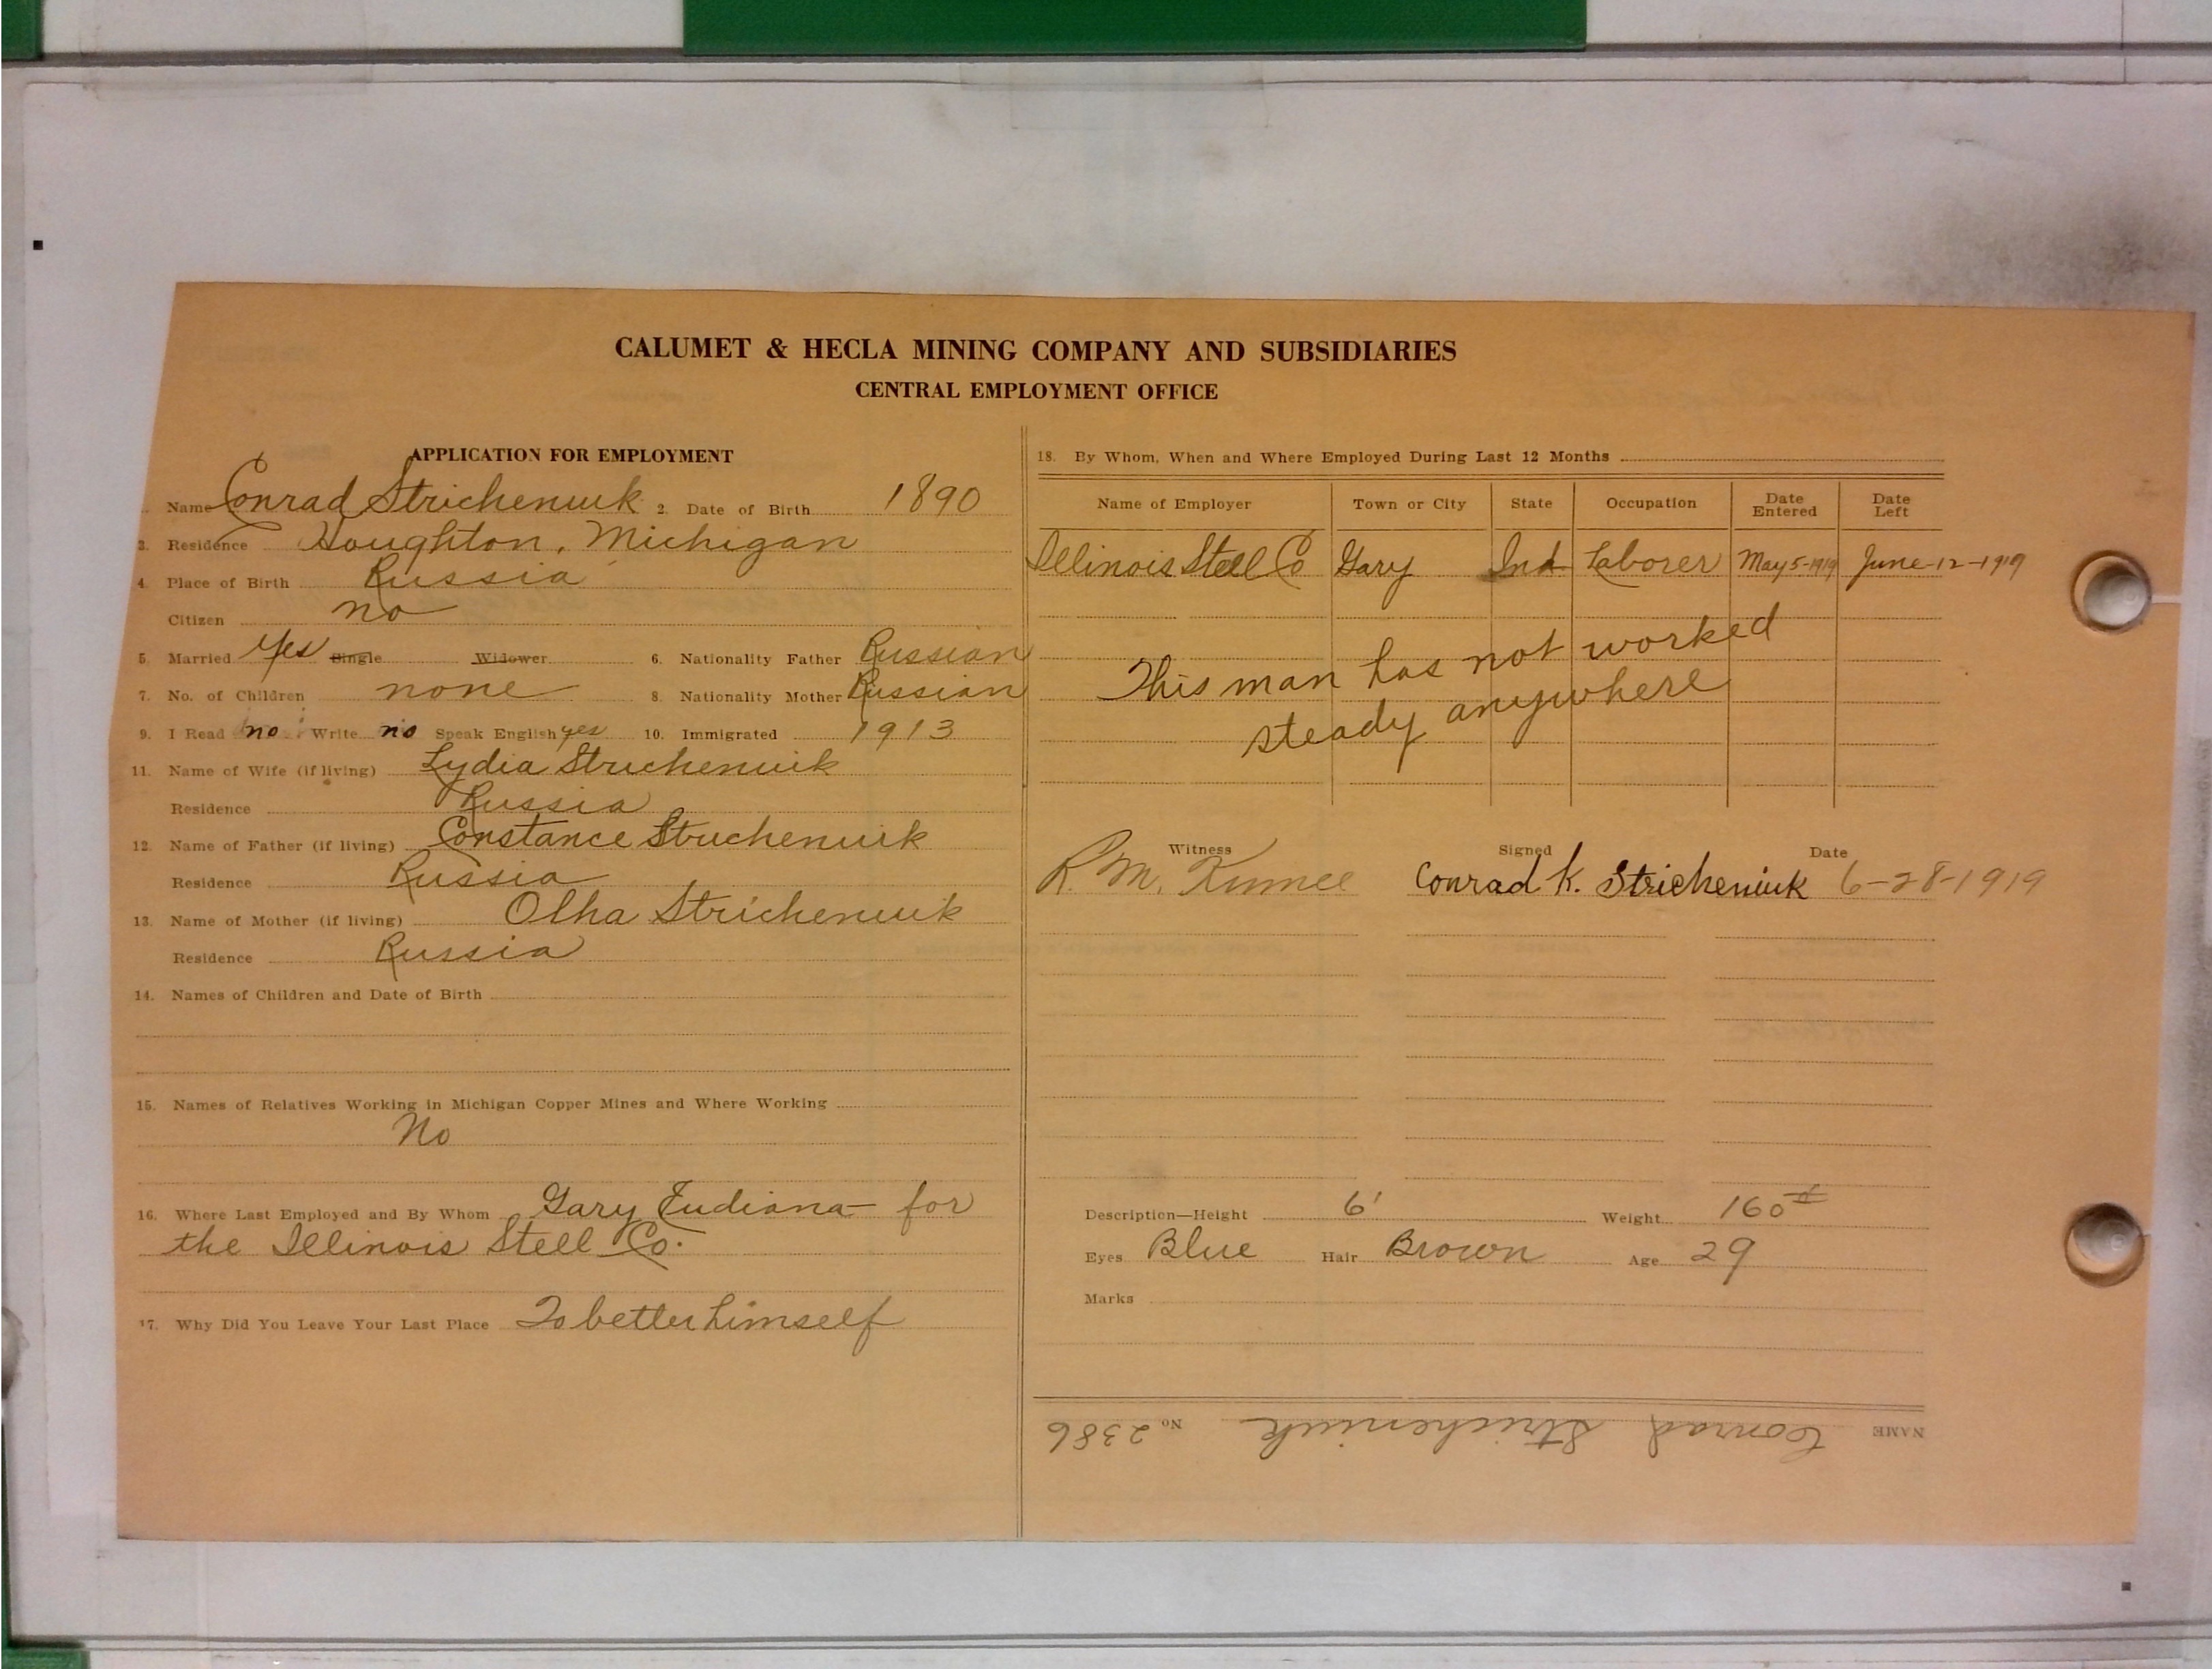 CALUMET & HECLA MINING COMPANY AND SUBSIDIARIES
CENTRAL EMPLOYMENT OFFICE
APPLICATION FOR EMPLOYMENT
Name Conrad Stricheniuk 2. Date of Birth 1890
3. Residence Houghton, Michigan
4. Place of Birth Russia
Citizen no
5. Married Yes Single Widower 6. Nationality Father Russian
7. No. of Children none 8. Nationality Mother Russian
9. I Read no Write no Speak English yes 10. Immigrated 1913
11. Name of Wife (if living) Lydia Stricheniuk
Residence Russia
12. Name of Father (if living) Constance Stricheniuk
Residence Russia
13. Name of Mother (if living) Olha Stricheniuk
Residence Russia
14. Names of Children and Date of Birth
15. Names of Relatives Working in Michigan Copper Mines and Where Working
No
16. Where Last Employed and By Whom Gary Indiana for
the Illinois Stell Co.
17. Why Did You Leave Your Last Place To better himself
18. By Whom, When and Where Employed During Last 12 Months
Name of Employer Town or City State Occupation Date Entered Date Left
Illinois Stell Co Gary Ind Laborer May 5-1919 June-12-1919
This man has not worked
steady anywhere
Witness Signed Date
R. M. Conrad K. Stricheniuk 6-28-1919
Description—Height 6' Weight 160 #
Eyes Blue Hair Brown Age 29
Marks
NAME Conrad Stricheniuk No 2386